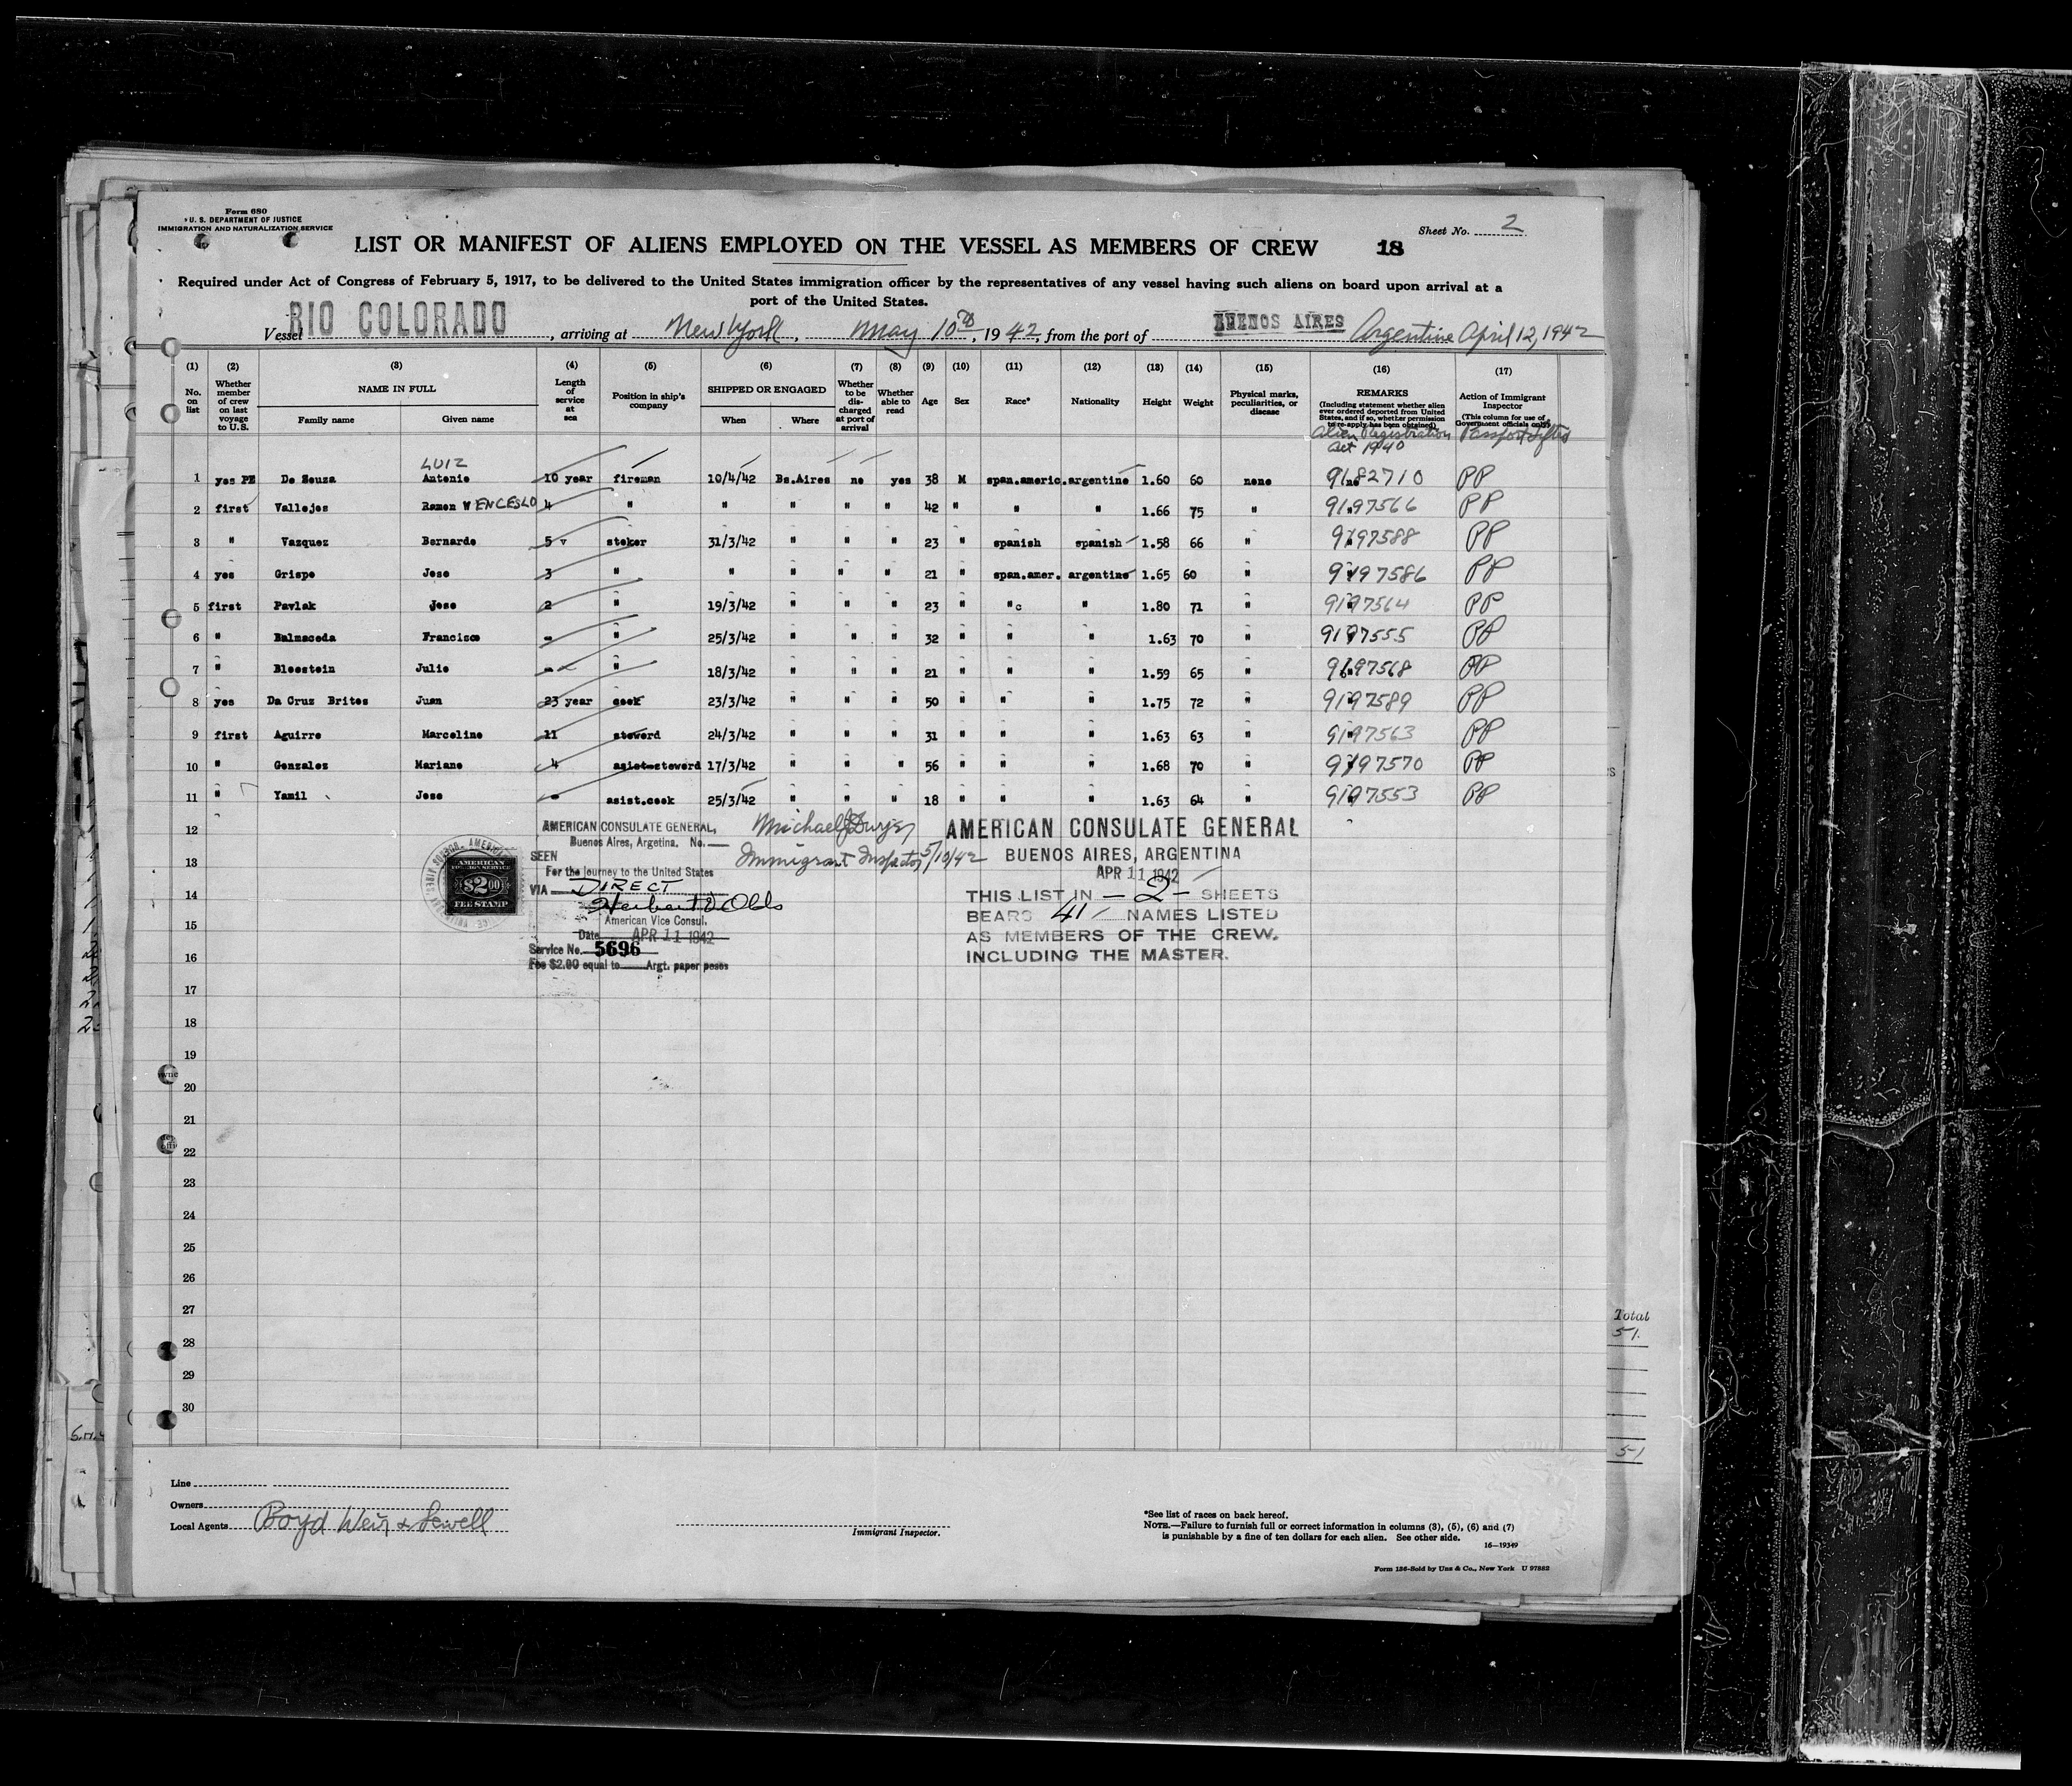 Form 680
U. S. DEPARTMENT OF JUSTICE
IMMIGRATION AND NATURALIZATION SERVICE
Sheet No. 2
LIST OR MANIFEST OF ALIENS EMPLOYED ON THE VESSEL AS MEMBERS OF CREW 18
Required under Act of Congress of February 5, 1917, to be delivered to the United States immigration officer by the representatives of any vessel having such aliens on board upon arrival at a
port of the United States.
Vessel RIO COLORADO, arriving at New York, May 10th, 1942, from the port of BUENOS AIRES Argentine April 12, 1942
(1) (2) (3) (4) (5) (6) (7) (8) (9) (10) (11) (12) (13) (14) (15) (16) (17)
No. on list
Whether member of crew on last voyage to U.S.
NAME IN FULL
Family name Given name
Length of service at sea
Position in ship's company
SHIPPED OR ENGAGED
When Where
Whether to be discharged at port of arrival
Whether able to read
Age Sex Race* Nationality Height Weight
Physical marks, peculiarities, or disease
REMARKS
(Including statement whether alien ever ordered deported from United States, and if so, whether permission to re-apply has been obtained)
Action of Immigrant Inspector
(This column for use of Government officials only)
Alien Registration Act 1940
Passport
LUIZ
1 yes PE De Souza Antonio 10 year fireman 10/4/42 Bs.Aires no yes 38 M span.americ. argentine 1.60 60 none 9182710 PP
2 first Vallejos Ramon WENCESLO 4 " " " " " 42 " " " 1.66 75 " 9197566 PP
3 " Vazquez Bernardo 5 stoker 31/3/42 " " " 23 " spanish spanish 1.58 66 " 9197588 PP
4 yes Grispo Jose 3 " " " " " 21 " span.amer. argentine 1.65 60 " 9197586 PP
5 first Pavlak Jose 2 " 19/3/42 " " " 23 " " " 1.80 71 " 9197564 PP
6 " Balmaceda Francisco - " 25/3/42 " " " 32 " " " 1.63 70 " 9197555 PP
7 " Bleestein Julio - " 18/3/42 " " " 21 " " " 1.59 65 " 9197568 PP
8 yes Da Cruz Brites Juan 23 year cook 23/3/42 " " " 50 " " " 1.75 72 " 9197589 PP
9 first Aguirre Marcelino 11 steward 24/3/42 " " " 31 " " " 1.63 63 " 9197563 PP
10 " Gonzalez Mariano 4 asist-steward 17/3/42 " " " 56 " " " 1.68 70 " 9197570 PP
11 " Yamil Jose - asist.cook 25/3/42 " " " 18 " " " 1.63 64 " 9197553 PP
12
13
14
15
16
17
18
19
20
21
22
23
24
25
26
27
28
29
30
AMERICAN CONSULATE GENERAL,
Buenos Aires, Argetina. No.
SEEN
For the journey to the United States
VIA DIRECT
American Vice Consul.
Date APR 11 1942
Service No. 5696
Fee $2.00 equal to Argt. paper pesos
AMERICAN
$2.00
FEE STAMP
Michael J
Immigrant Inspector 5/10/42
AMERICAN CONSULATE GENERAL
BUENOS AIRES, ARGENTINA
APR 11 1942
THIS LIST IN - 2 - SHEETS
BEARS 41 NAMES LISTED
AS MEMBERS OF THE CREW.
INCLUDING THE MASTER.
Total
51.
51
Line
Owners
Local Agents Boyd Weir & Sewell
Immigrant Inspector.
*See list of races on back hereof.
NOTE.—Failure to furnish full or correct information in columns (3), (5), (6) and (7)
is punishable by a fine of ten dollars for each alien. See other side.
16—19349
Form 136-Sold by Unz & Co., New York U 97882